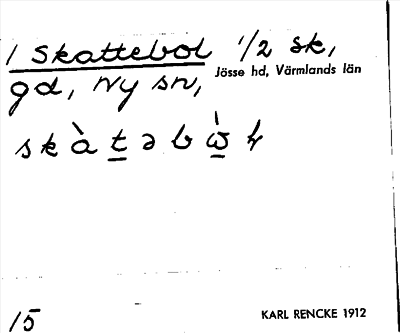 1 Skattebol 1/2 sk,
Jösse hd, Värmlands län
gd, Ny sn,
15
KARL RENCKE 1912